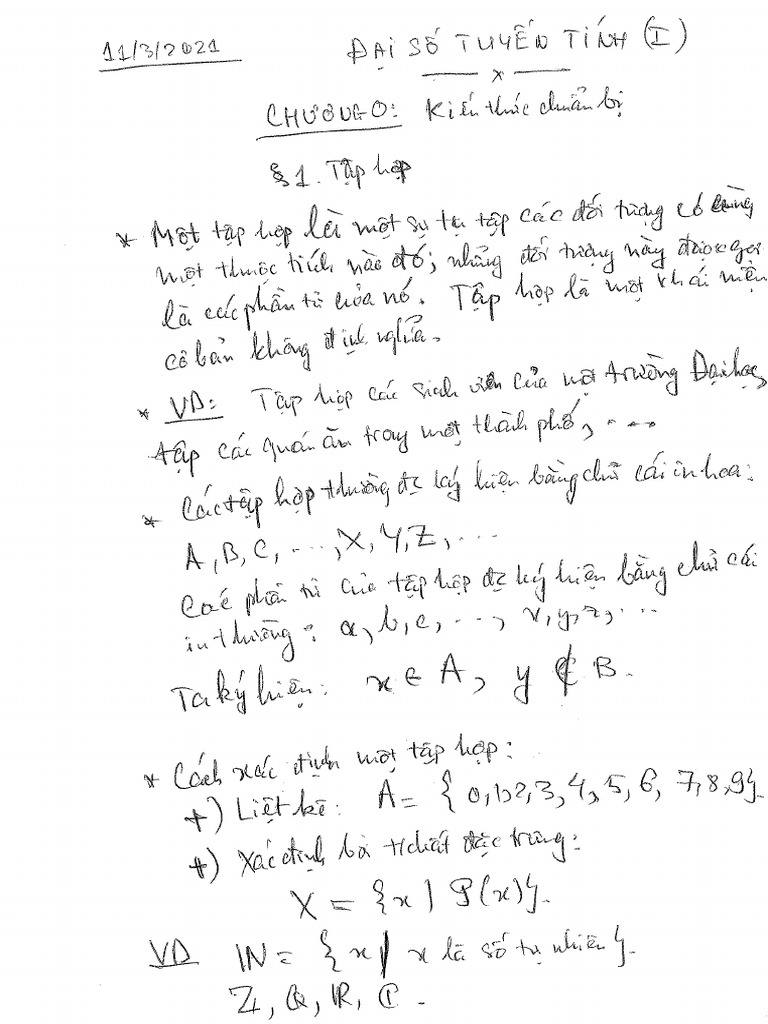 11/3/2021 ĐẠI SỐ TUYẾN TÍNH (I)
x
CHƯƠNG 0: Kiến thức chuẩn bị
§1. Tập hợp
* Một tập hợp là một sự tụ tập các đối tượng có cùng
một thuộc tính nào đó; những đối tượng này được gọi
là các phần tử của nó. Tập hợp là một khái niệm
cơ bản không định nghĩa.
* VD: Tập hợp các sinh viên của một trường Đại học,
tập các quán ăn trong một thành phố, ...
* Các tập hợp thường đc ký hiệu bằng chữ cái in hoa:
A, B, C, ..., X, Y, Z, ...
Các phần tử của tập hợp đc ký hiệu bằng chữ cái
in thường: a, b, c, ..., x, y, z, ...
Ta ký hiệu: x ∈ A, y ∉ B.
* Cách xác định một tập hợp:
+) Liệt kê: A = {0,1,2,3,4,5,6,7,8,9}.
+) Xác định bởi t/chất đặc trưng:
X = {x | P(x)}.
VD ℕ = {x | x là số tự nhiên}.
ℤ, ℚ, ℝ, ℂ.